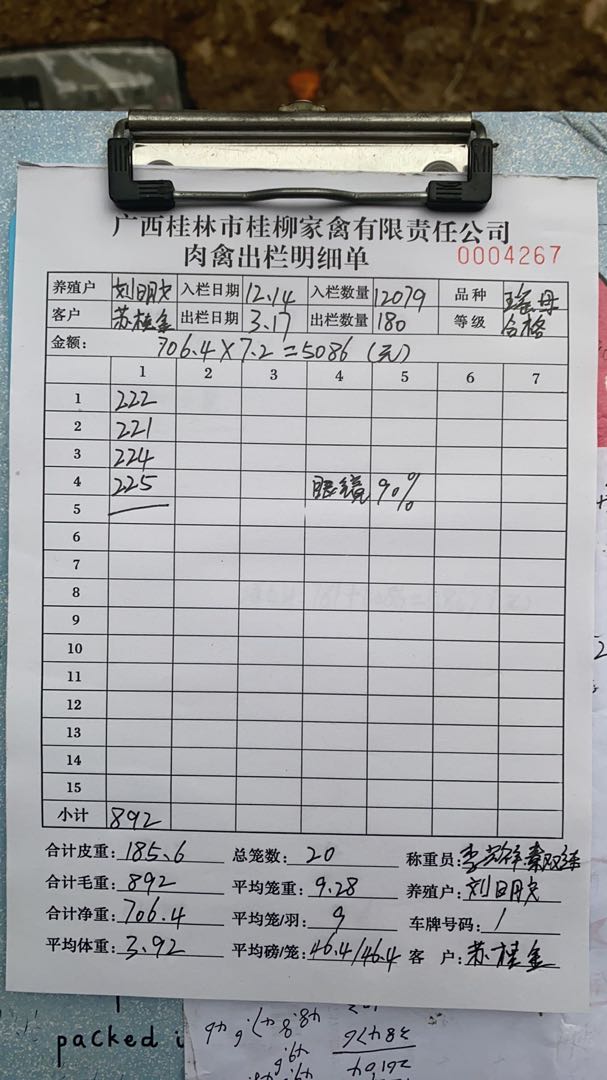 广西桂林市桂柳家禽有限责任公司
肉禽出栏明细单 0004267
养殖户 入栏日期 12.14 入栏数量 12079 品种 瑶母
客户 苏桂金 出栏日期 3.17 出栏数量 180 等级 合格
金额: 706.4×7.2=5086(元)
1 2 3 4 5 6 7
1 222
2 221
3 224
4 225 眼镜 90%
5
6
7
8
9
10
11
12
13
14
15
小计 892
合计皮重: 185.6 总笼数: 20 称重员:
合计毛重: 892 平均笼重: 9.28 养殖户:
合计净重: 706.4 平均笼/羽: 9 车牌号码: /
平均体重: 3.92 平均磅/笼: 46.4/46.4 客户: 苏桂金
packed i